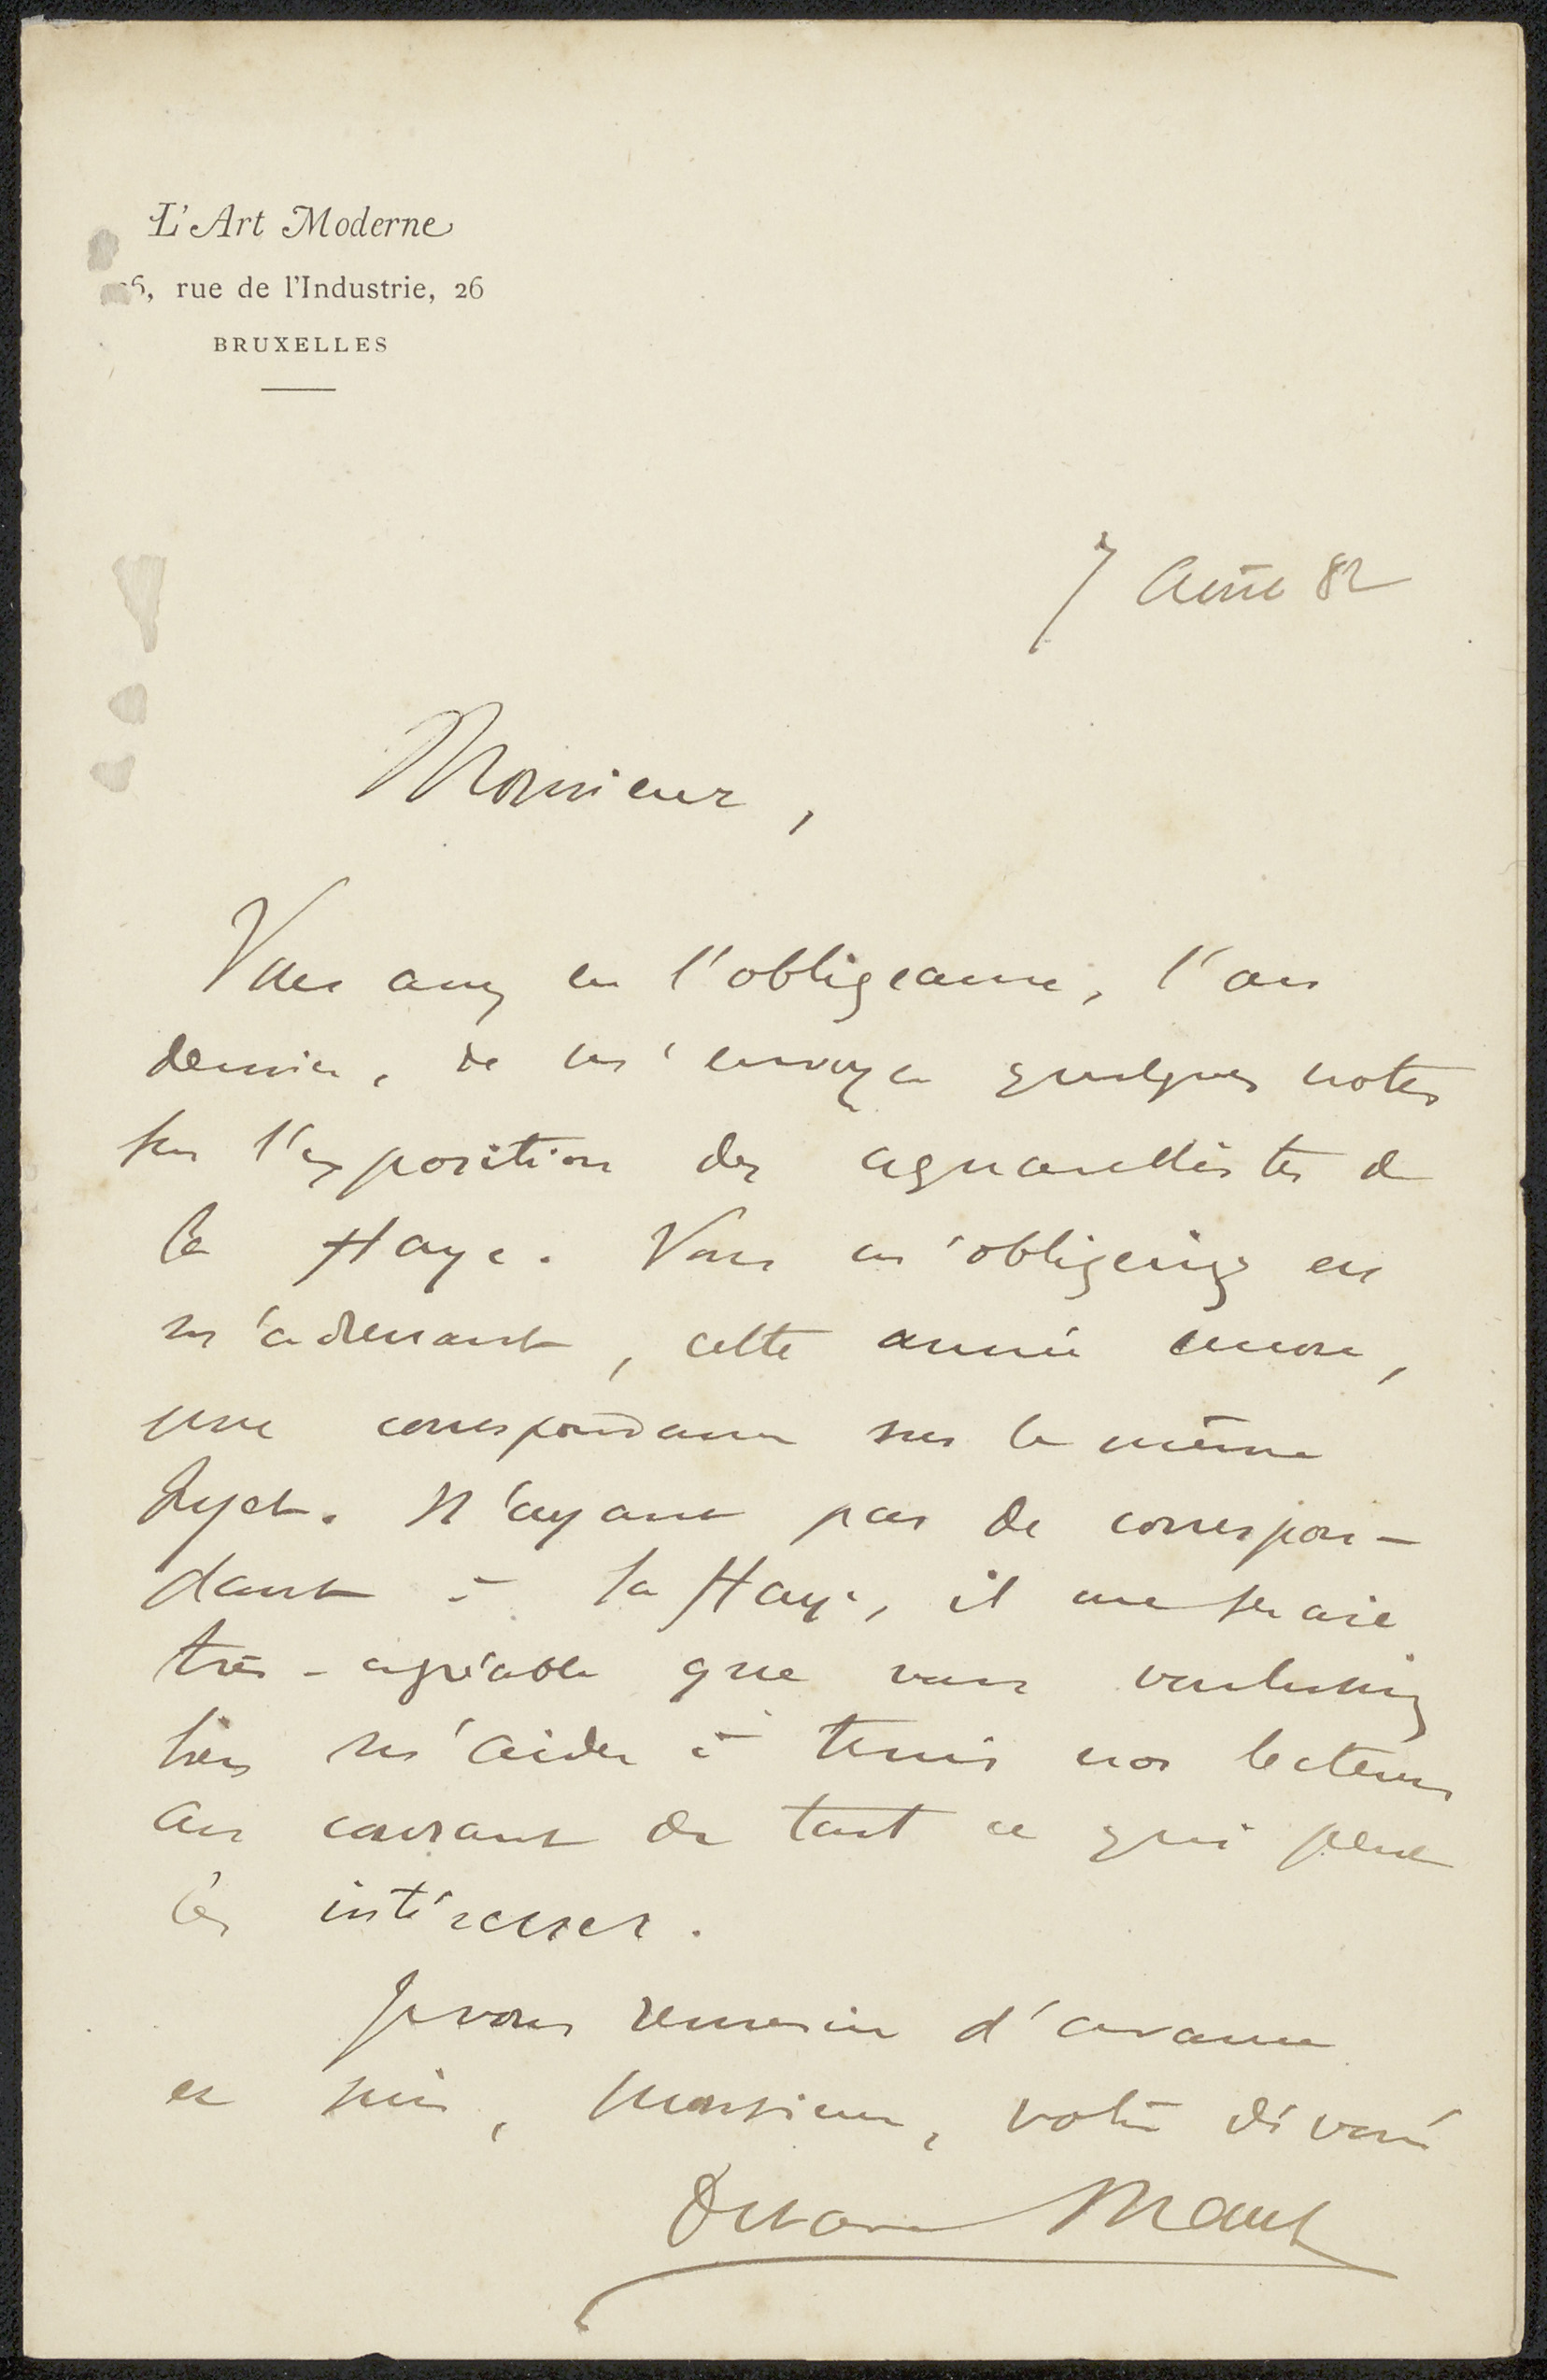 L'Art Moderne
26, rue de l'Industrie, 26
BRUXELLES
7 Août 82
Monsieur,
Vous avez eu l'obligeance, l'an
dernier, de m'envoyer quelques notes
sur l'exposition des aquarellistes de
la Haye. Vous m'obligeriez en
m'adressant, cette année encore,
une correspondance sur le même
sujet. N'ayant pas de correspon-
dant à la Haye, il me serait
très-agréable que vous voulussiez
bien m'aider à tenir nos lecteurs
au courant de tout ce qui peut
les intéresser.
Je vous remercie d'avance
et suis, Monsieur, votre dévoué
Octave Maus